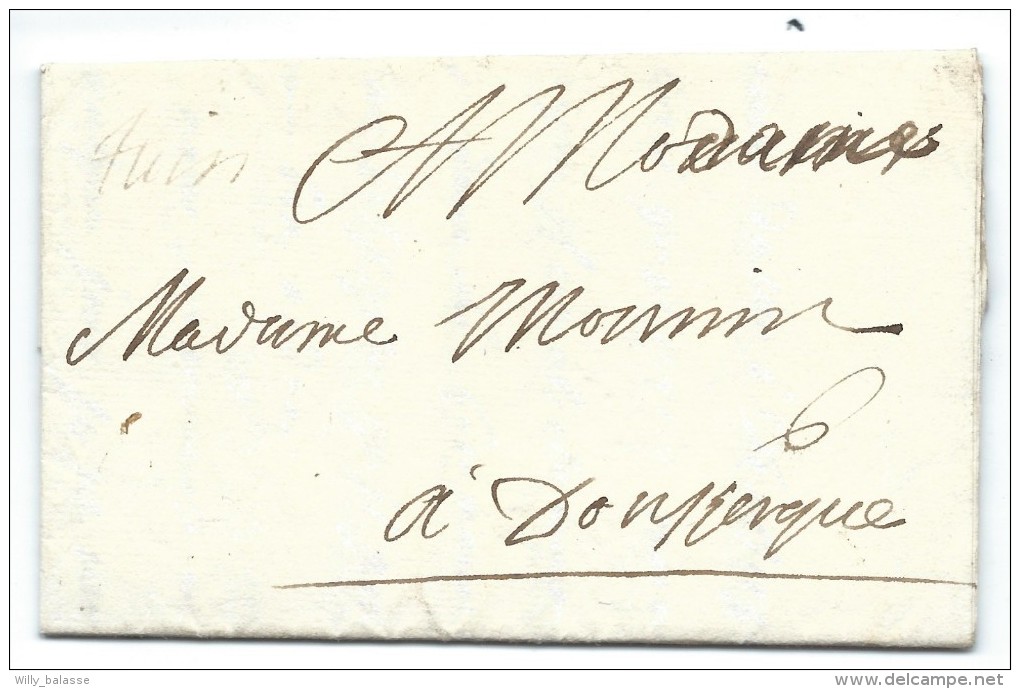 A Madame
Madame Mounin
6
à Donkerque
Willy_balasse
delcampe.net